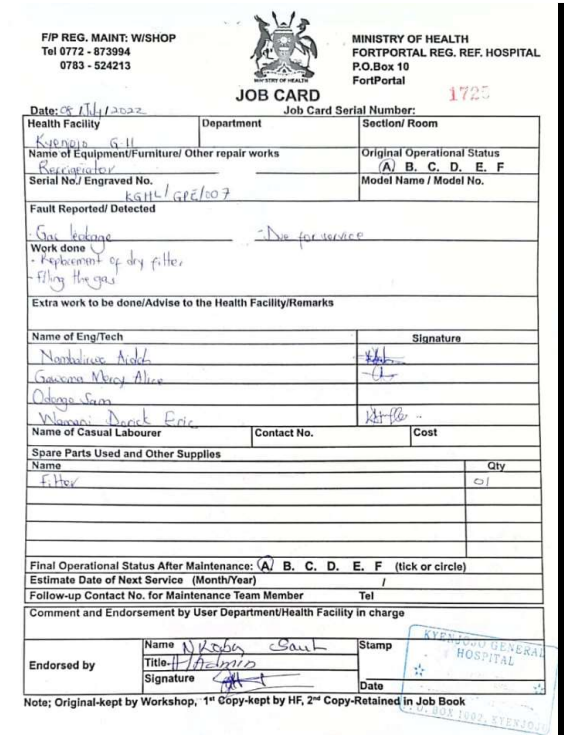 F/P REG. MAINT: W/SHOP
Tel 0772 - 873994
0783 - 524213
MINISTRY OF HEALTH
MINISTRY OF HEALTH
FORTPORTAL REG. REF. HOSPITAL
P.O.Box 10
FortPortal
JOB CARD
1725
Date: 05 / July / 2022 Job Card Serial Number:
Health Facility Department Section/ Room
Kyenjojo G.H
Name of Equipment/Furniture/ Other repair works Original Operational Status
Refrigerator (A) B. C. D. E. F
Serial No./ Engraved No. Model Name / Model No.
KGHL/GPE/007
Fault Reported/ Detected
- Gas leakage - Due for service
Work done
- Replacement of dry filter
- Filling the gas
Extra work to be done/Advise to the Health Facility/Remarks
Name of Eng/Tech Signature
Nambaliruc Aidah
Gawoma Mercy Alice
Odongo Sam
Wamani Darick Eric
Name of Casual Labourer Contact No. Cost
Spare Parts Used and Other Supplies
Name Qty
Filter 01
Final Operational Status After Maintenance: (A) B. C. D. E. F (tick or circle)
Estimate Date of Next Service (Month/Year) /
Follow-up Contact No. for Maintenance Team Member Tel
Comment and Endorsement by User Department/Health Facility in charge
Endorsed by
Name Nkoba Saul
Title- H/Admin
Signature
Stamp
Date
KYENJOJO GENERAL
HOSPITAL
P.O. BOX 1002, KYENJOJO
Note; Original-kept by Workshop, 1st Copy-kept by HF, 2nd Copy-Retained in Job Book